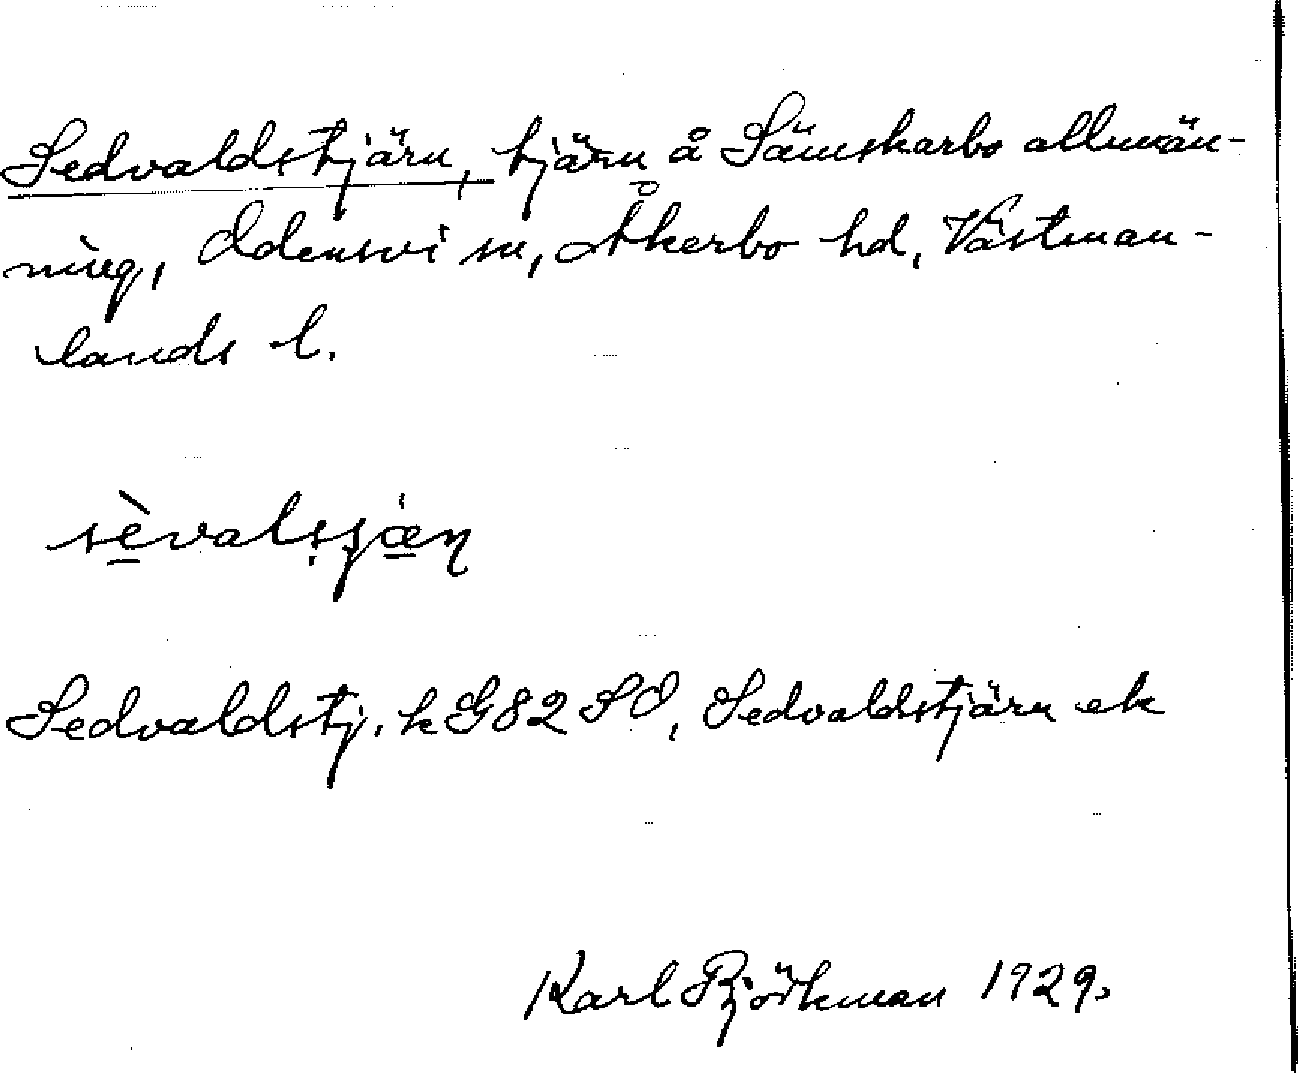 Sedvaldstjärn, tjärn å Sämskarbo allmän-
ning, Odensvi sn, Åkerbo hd, Västman-
lands l.
sèvalsjæn
Sedvaldstj. k G82 SO, Sedvaldstjärn ek
Karl Björkman 1929.